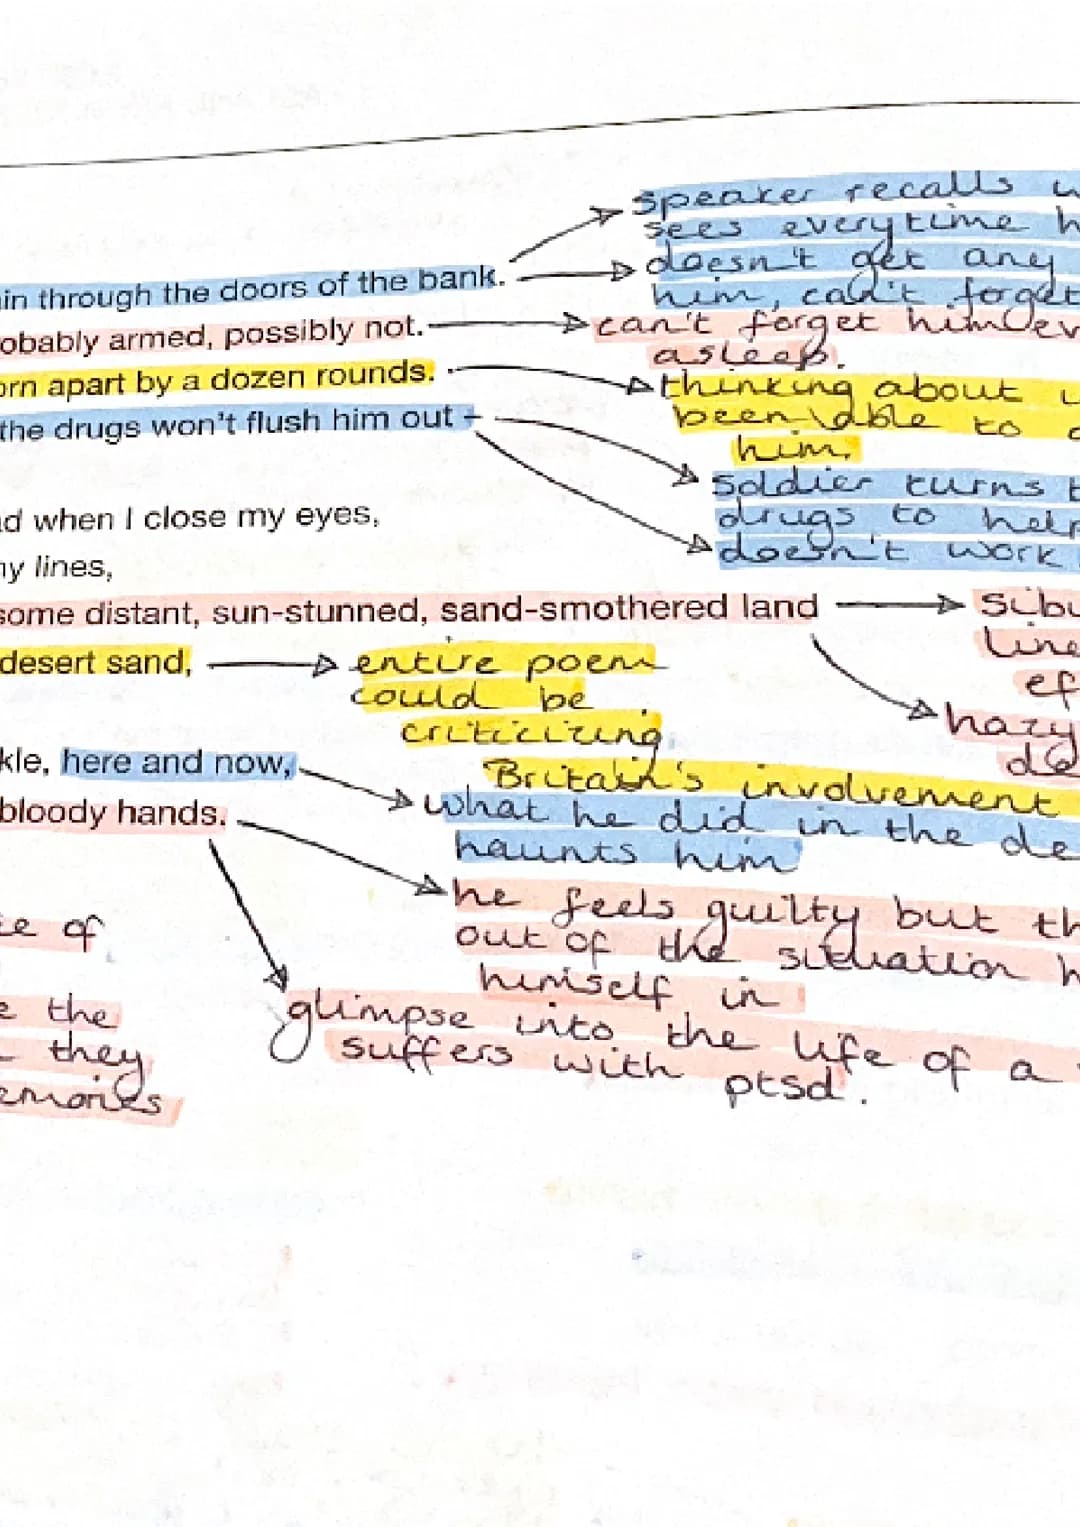 speaker recalls
sees everytime
doesn't get any
him, can't forget
in through the doors of the bank.
obably armed, possibly not.
can't forget him
asleep.
orn apart by a dozen rounds.
thinking about
been able to
him.
the drugs won't flush him out –
soldier turns
drugs to help
doesn't work
d when I close my eyes,
y lines,
some distant, sun-stunned, sand-smothered land
line
desert sand,
entire poem
could be
criticizing
Britain's involvement
hazy
kle, here and now,
what he did in the de
haunts him
bloody hands.
he feels guilty but th
out of the situation h
himself in
ce of
e the
they
emories
glimpse into the life of a
suffers with
ptsd.